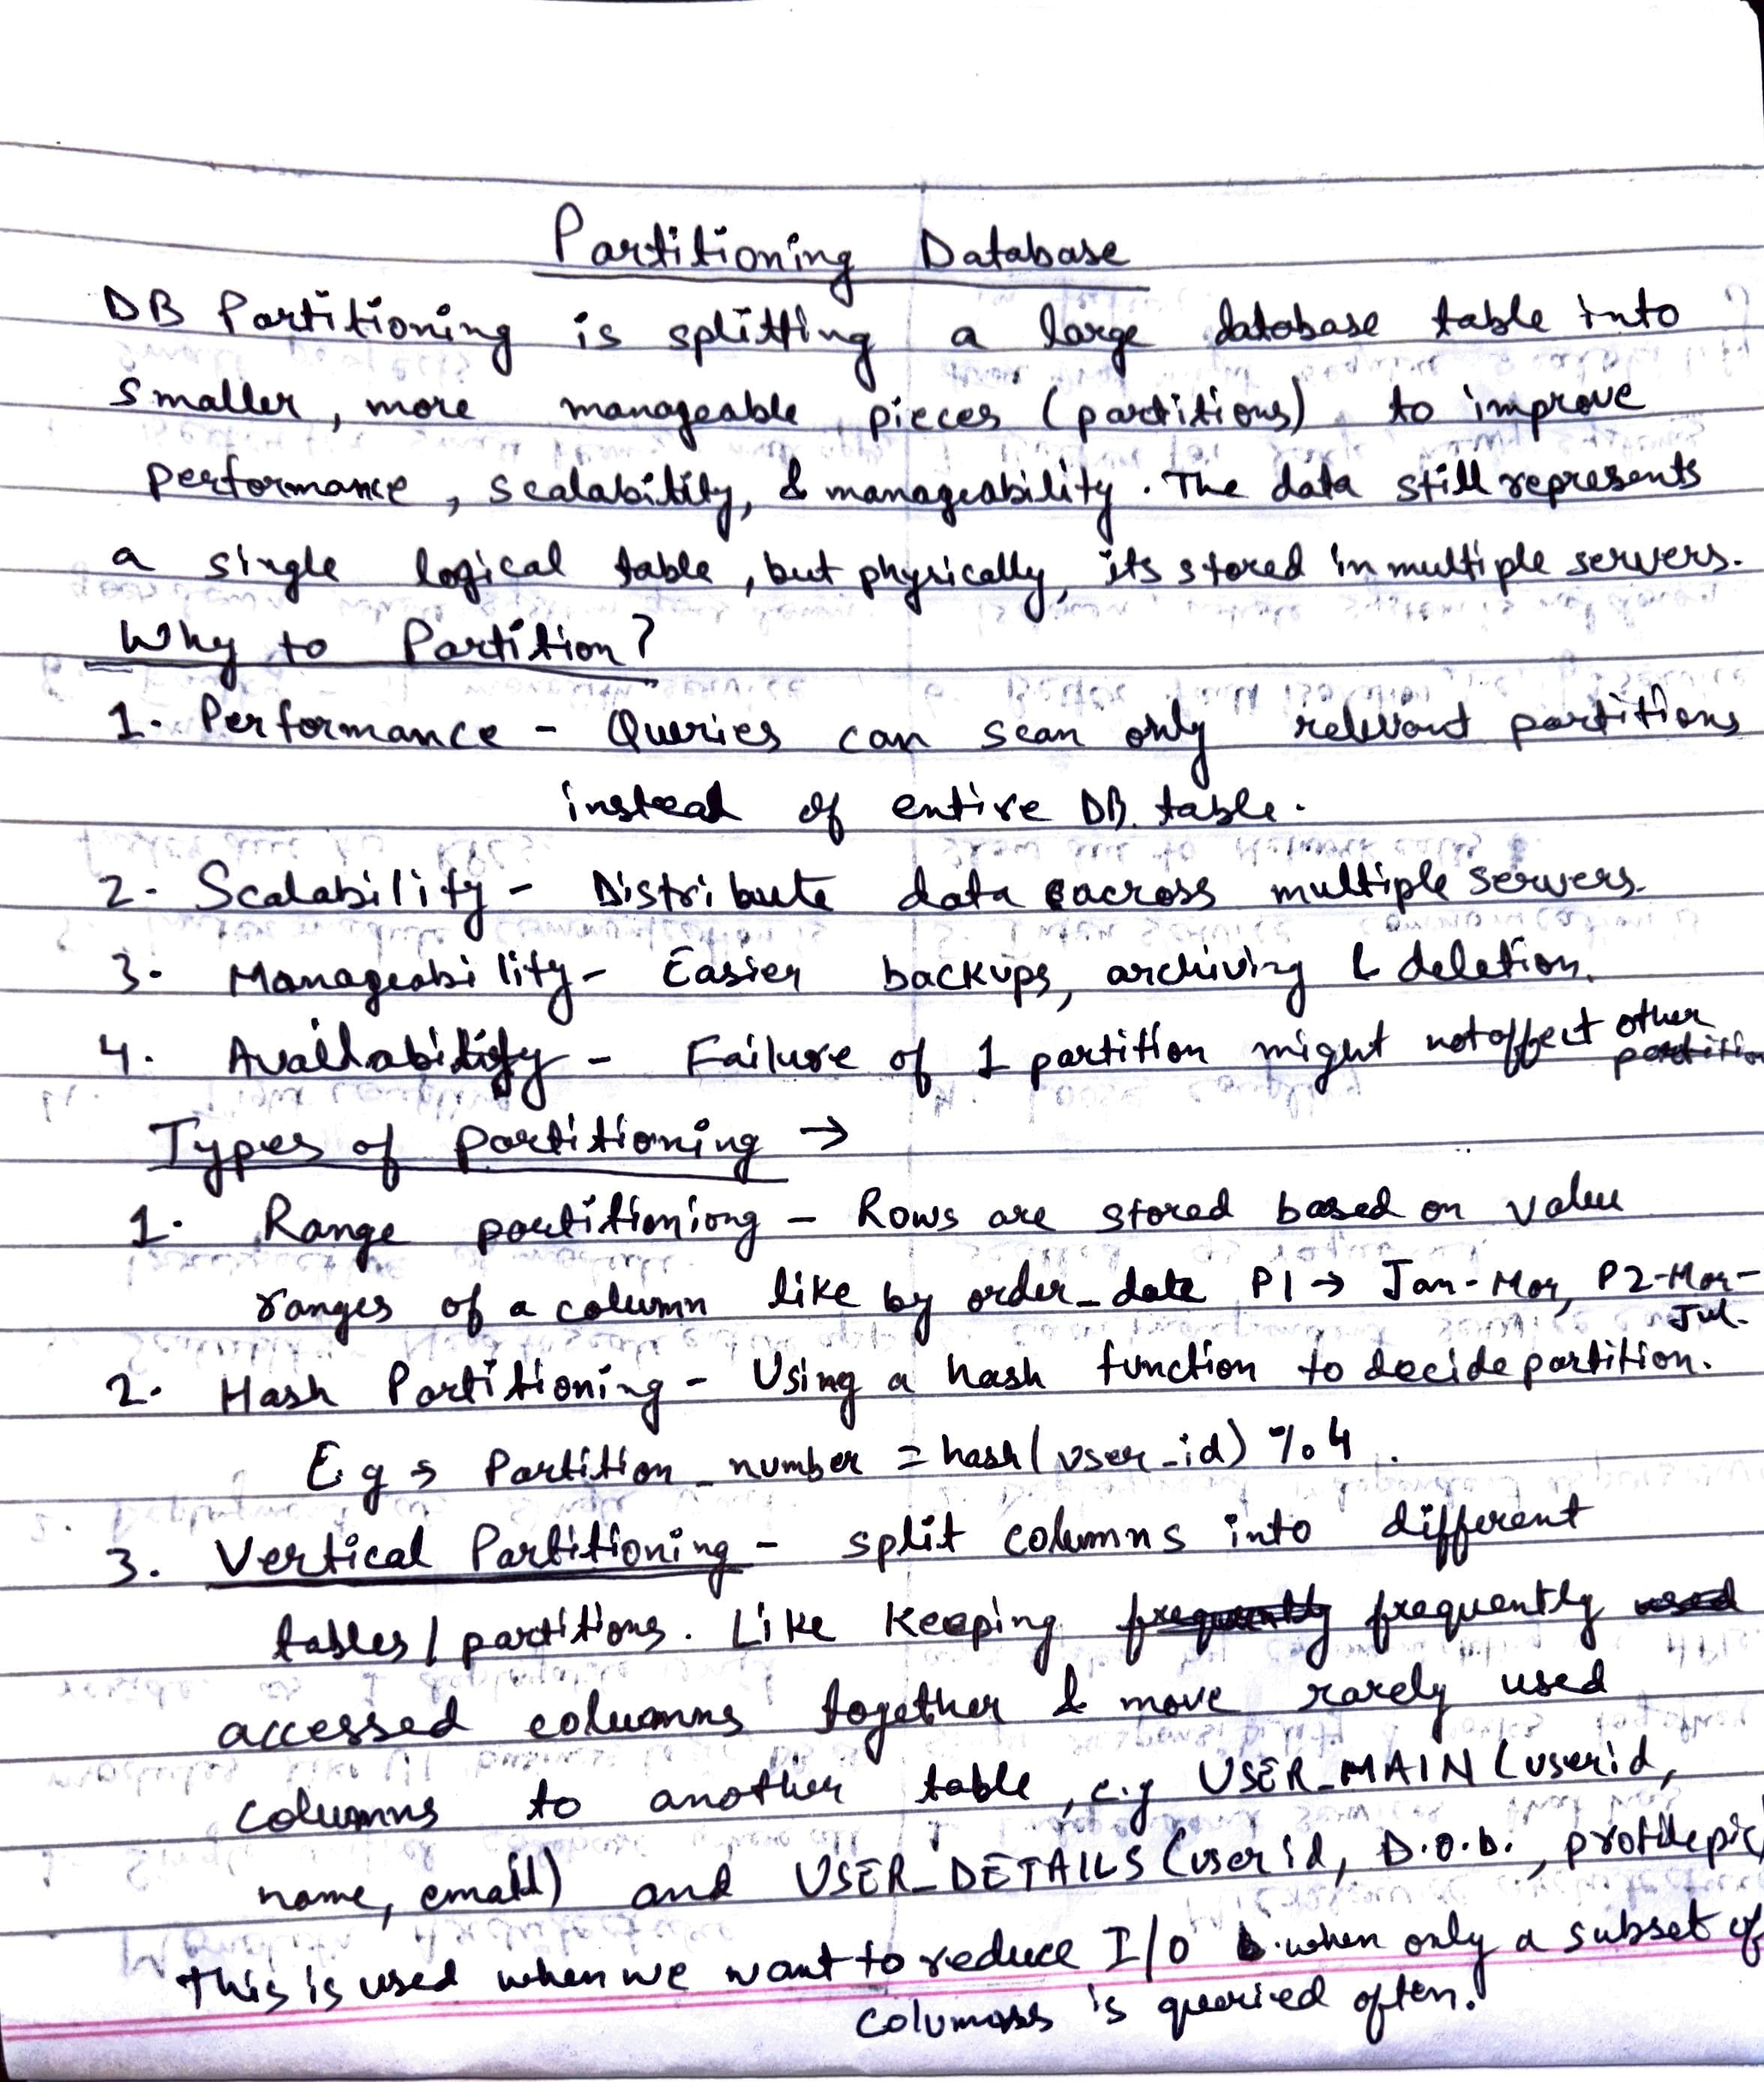 Partitioning Database
DB Partitioning is splitting a large database table into
smaller, more manageable pieces (partitions) to improve
performance, scalability, & manageability. The data still represents
a single logical table, but physically, its stored in multiple servers.
Why to Partition?
1. Performance - Queries can scan only relevant partitions
instead of entire DB. table.
2. Scalability - Distribute data across multiple servers.
3. Manageability - Easier backups, archiving & deletion.
4. Availability - Failure of 1 partition might not affect other
partition
Types of partitioning →
1. Range partitioniong - Rows are stored based on value
ranges of a column like by order_date P1 → Jan-Mar, P2-Mar-
Jul.
2. Hash Partitioning - Using a hash function to decide partition.
Eg → Partition_number = hash(user_id) % 4.
3. Vertical Partitioning - split columns into different
tables/partitions. Like keeping frequently frequently used
accessed columns together & move rarely used
columns to another table, e.g USER_MAIN (userid,
name, email) and USER_DETAILS (userid, D.o.b., profilepic)
This is used when we want to reduce I/O when only a subset of
columns is queried often.